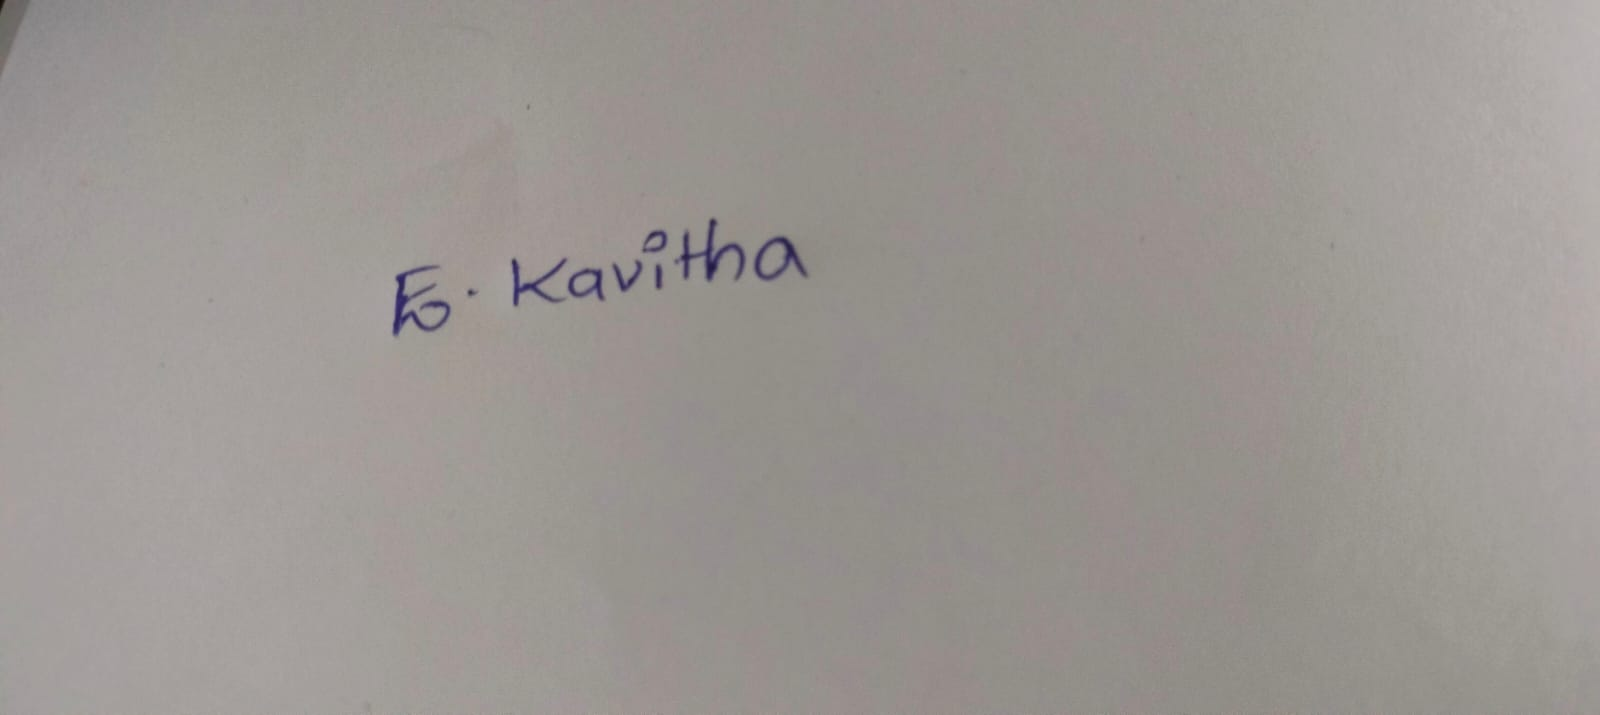 E. Kavitha